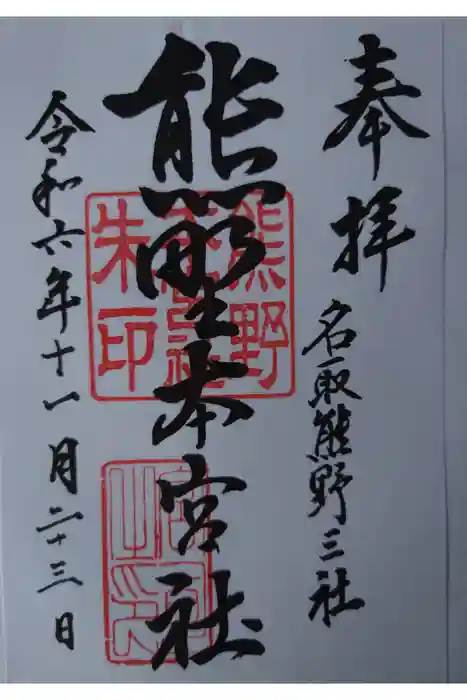 奉拝
名取熊野三社
熊野本宮社
令和六年十一月二十三日
熊野
朱印